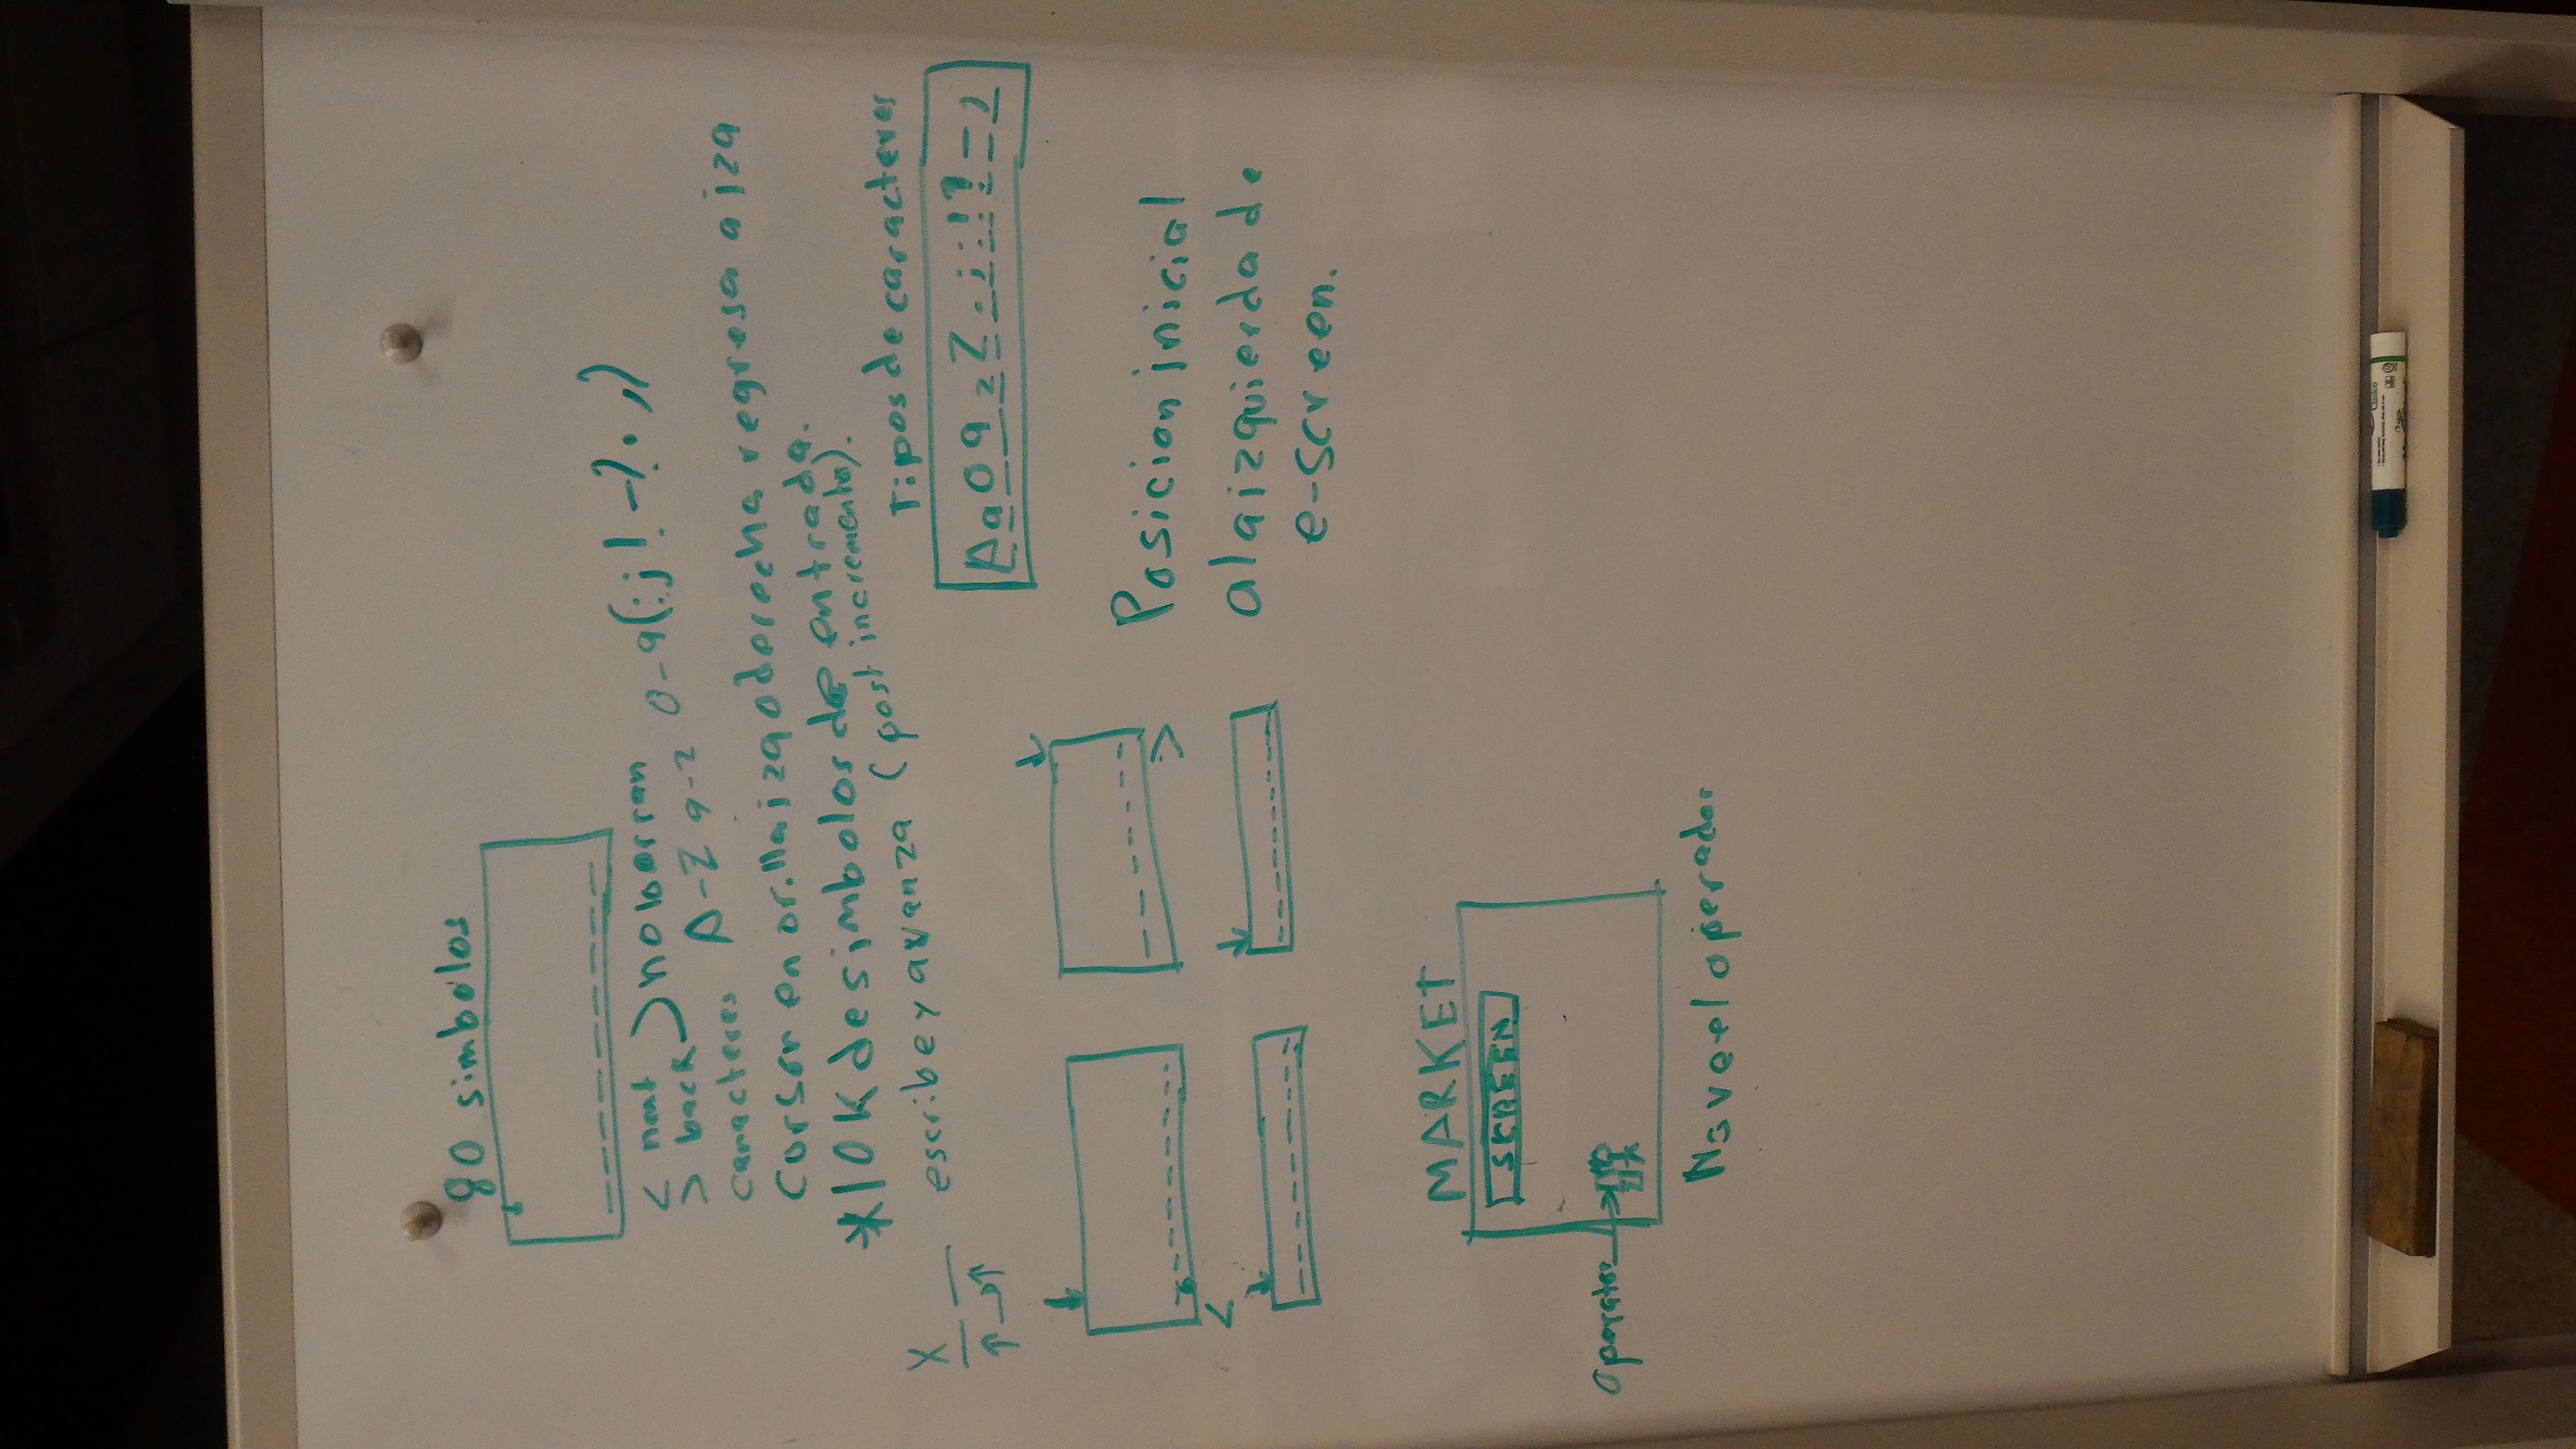 80 simbolos
< next
> back
no borran
caracteres A-Z a-z 0-9 (:;!-?.,)
Cursor en orilla izq o derecha regresa a izq
*10K de simbolos de entrada.
X
escribe y avanza (post incremento).
Tipos de caracteres
A a 0 9 z Z . ; : ! ? - ,
>
<
Posicion inicial
a la izquierda de
e-screen.
MARKET
SCREEN
operator
No ve el operador